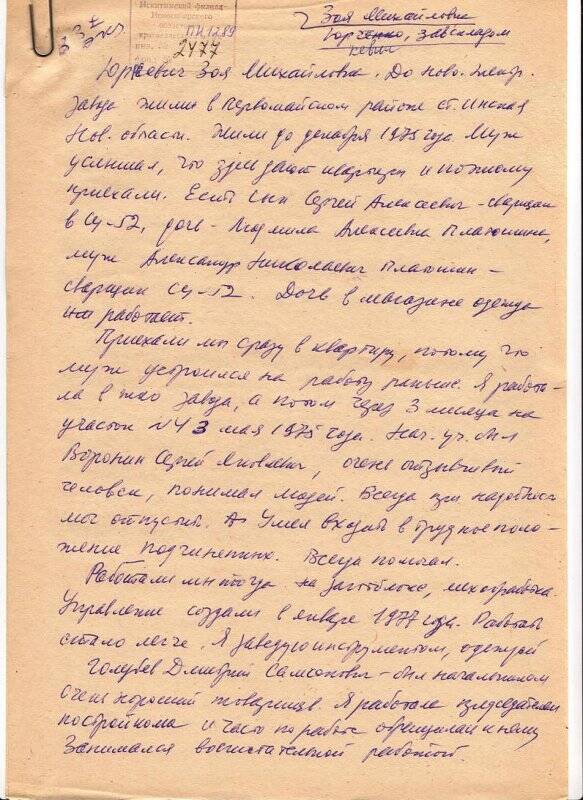 Искитимский филиал
Новосибирского
ПИ.1289
2477
Зоя Михайловна
Юрченко, завскладом
кевич
Юркевич Зоя Михайловна. До Ново. Электр.
завода жили в Первомайском районе ст. Инская
Нов. области. Жили до декабря 1975 года. Муж
услышал, что здесь дают квартиры и поэтому
приехали. Есть сын Сергей Алексеевич – сварщик
в СУ-52, дочь – Людмила Алексеевна
муж Александр Николаевич
сварщик СУ-52. Дочь в магазине одежда
работает.
Приехали мы сразу в квартиру, потому что
муж устроился на работу раньше. Я работа-
ла в завода, а потом через 3 месяца на
участок N4 3 мая 1975 года. Нач. уч. был
Воронин Сергей Яковлевич, очень отзывчивый
человек, понимал людей. Всегда при надобности
мог отпустить. А умел входить в трудное поло-
жение подчиненных. Всегда помогал.
Работали мы тогда на мехобработка.
Управление создали в январе 1977 года. Работать
стало легче. Я заведую инструментом, одеждой
Голубев Дмитрий Самсонович – был начальником
Очень хороший товарищ. Я работала председателем
постройкома и часто по работе обращалась к нему
Занимался воспитательной работой.